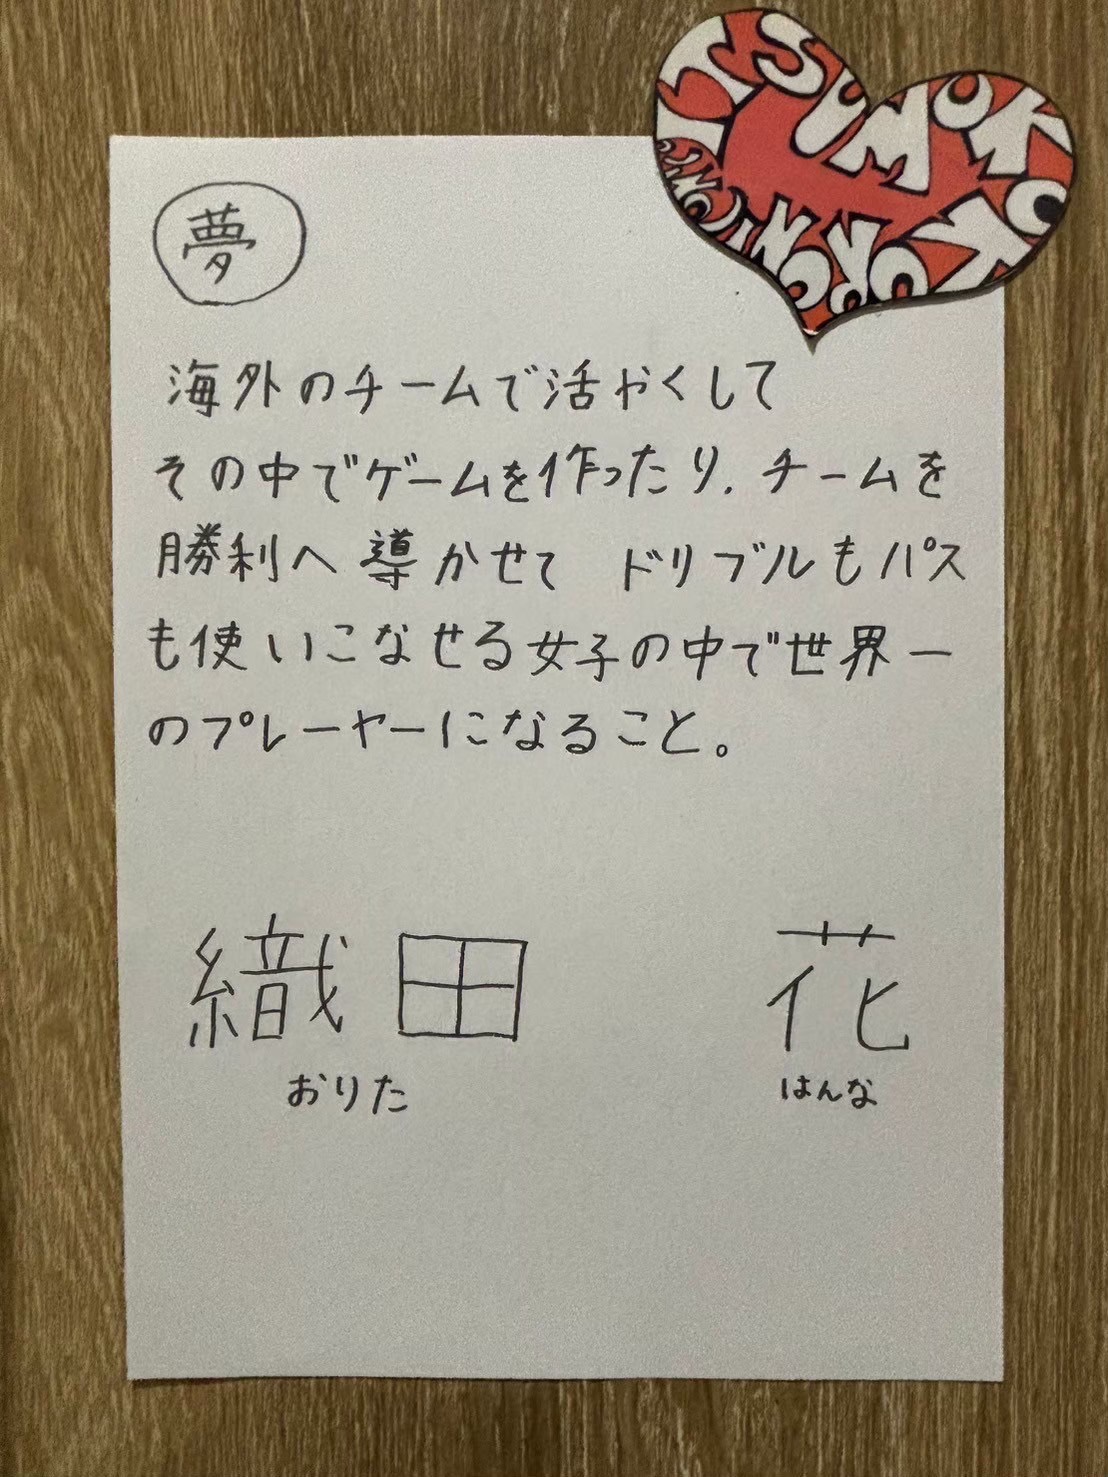 夢
海外のチームで活やくして
その中でゲームを作ったり、チームを
勝利へ導かせて ドリブルもパス
も使いこなせる女子の中で世界一
のプレーヤーになること。
織田 花
おりた はんな